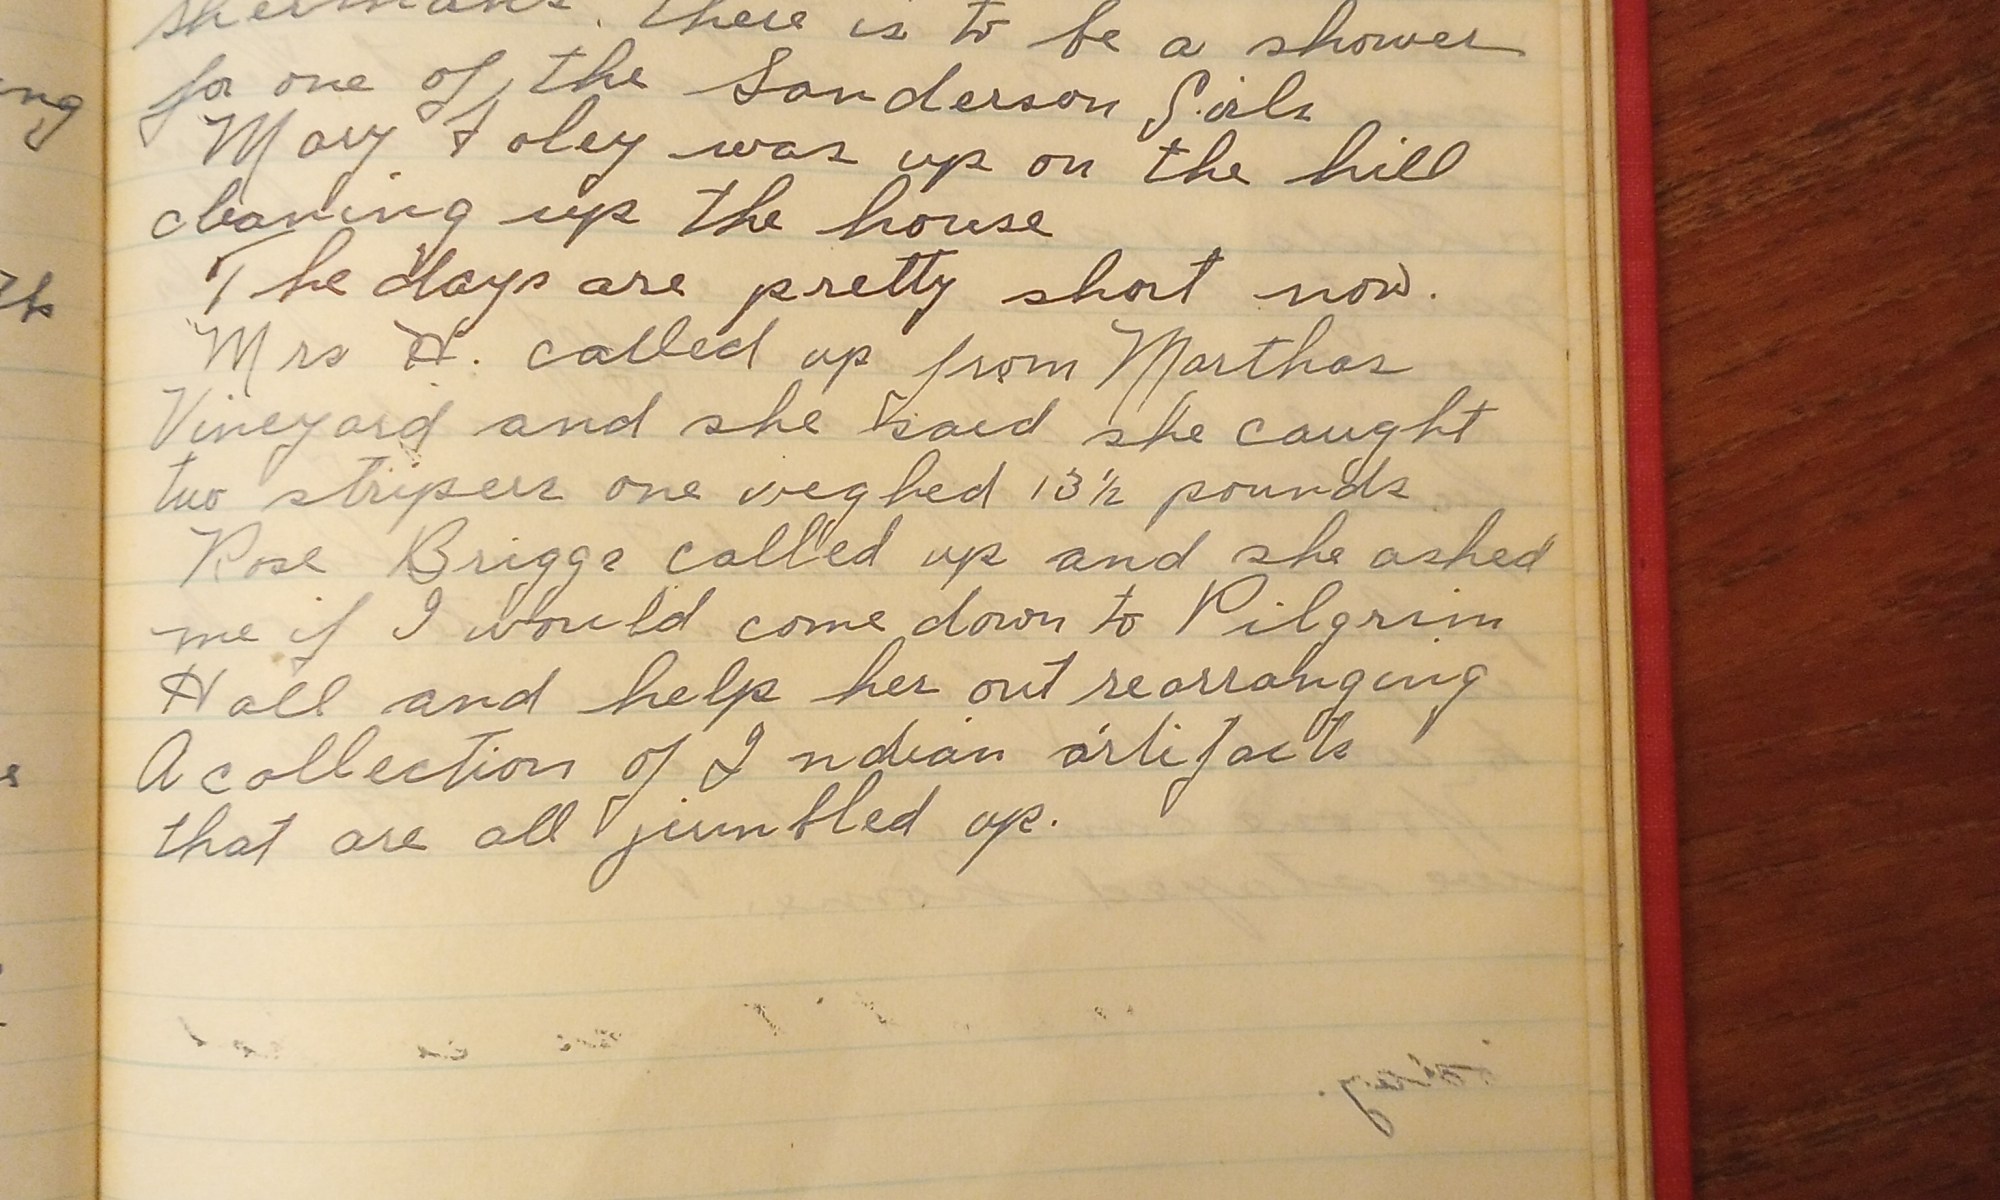 Shermans. There is to be a shower
for one of the Sanderson Girls
Mary Foley was up on the hill
cleaning up the house
The days are pretty short now.
Mrs H. called up from Marthas
Vineyard and she said she caught
two stripers one weghed 13½ pounds
Rose Briggs called up and she asked
me if I would come down to Pilgrim
Hall and help her out rearranging
A collection of Indian artifacts
that are all jumbled up.